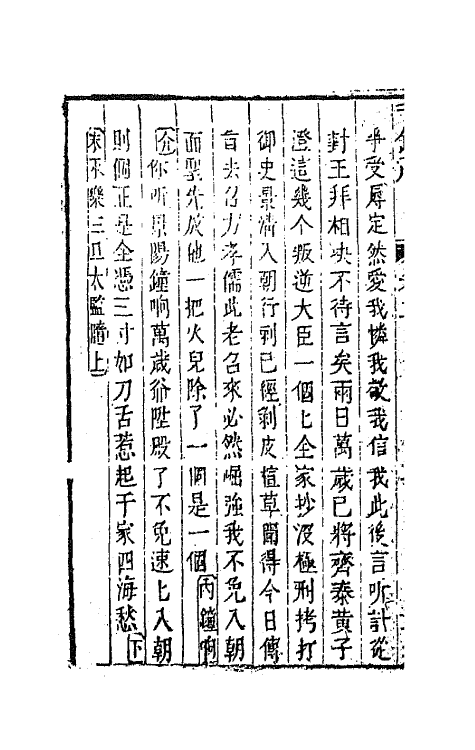 爭受辱定然愛我憐我敬我信我此後言听計從
對王拜相决不待言矣兩日萬歲已將齊泰黄子
澄這幾个叛逆大臣一個匕全家抄没極刑拷打
御史景清入朝行刺已經剥皮楦草聞得今日傳
旨去召方孝儒此老召來必然崛強我不免入朝
面聖先放他一把火兒除了一個是一個内鐘响
介你听景陽鐘响萬歲爺陞殿了不免速匕入朝
則個正是全憑三寸如刀舌惹起千家四海愁下
末不樂三丑太監隨上